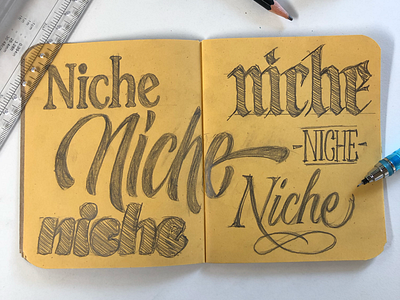 Niche
Niche
niche
niche
-NICHE-
Niche